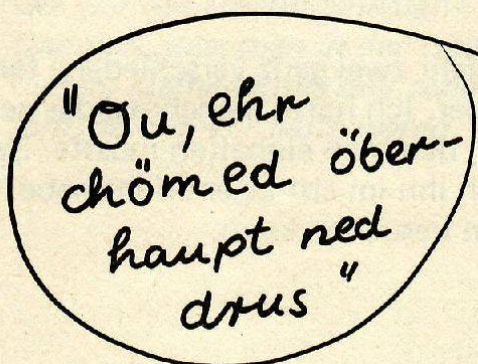 "Ou, ehr
chömed öber-
haupt ned
drus"